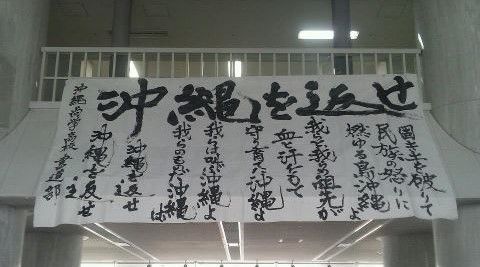 沖縄を返せ
固き土を破りて
民族の怒りに
燃ゆる島沖縄よ
我らと我らの祖先が
血と汗をもて
守り育てた沖縄よ
我らは叫ぶ沖縄よ
我らのもの沖縄は
沖縄を返せ
沖縄を返せ
沖縄尚学高校 書道部